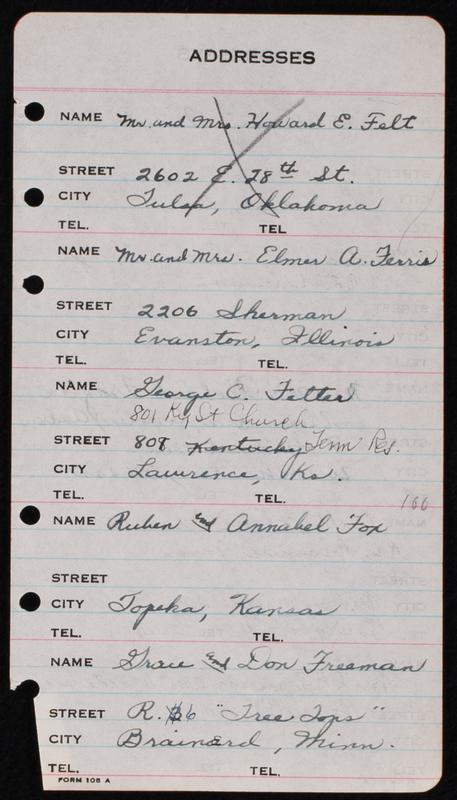 ADDRESSES
NAME Mr. and Mrs. Howard E. Felt
STREET 2602 E. 28th St.
CITY Tulsa, Oklahoma
TEL. TEL
NAME Mr. and Mrs. Elmer A. Ferris
STREET 2206 Sherman
CITY Evanston, Illinois
TEL. TEL.
NAME George C. Fetter
801 Ky St Church
STREET 808 Kentucky Tenn Res.
CITY Lawrence, Ks.
TEL. TEL. 166
NAME Ruben and Annabel Fox
STREET
CITY Topeka, Kansas
TEL. TEL.
NAME Grace and Don Freeman
STREET R. 6 "Tree Tops"
CITY Brainerd, Minn.
TEL. TEL.
FORM 106 A